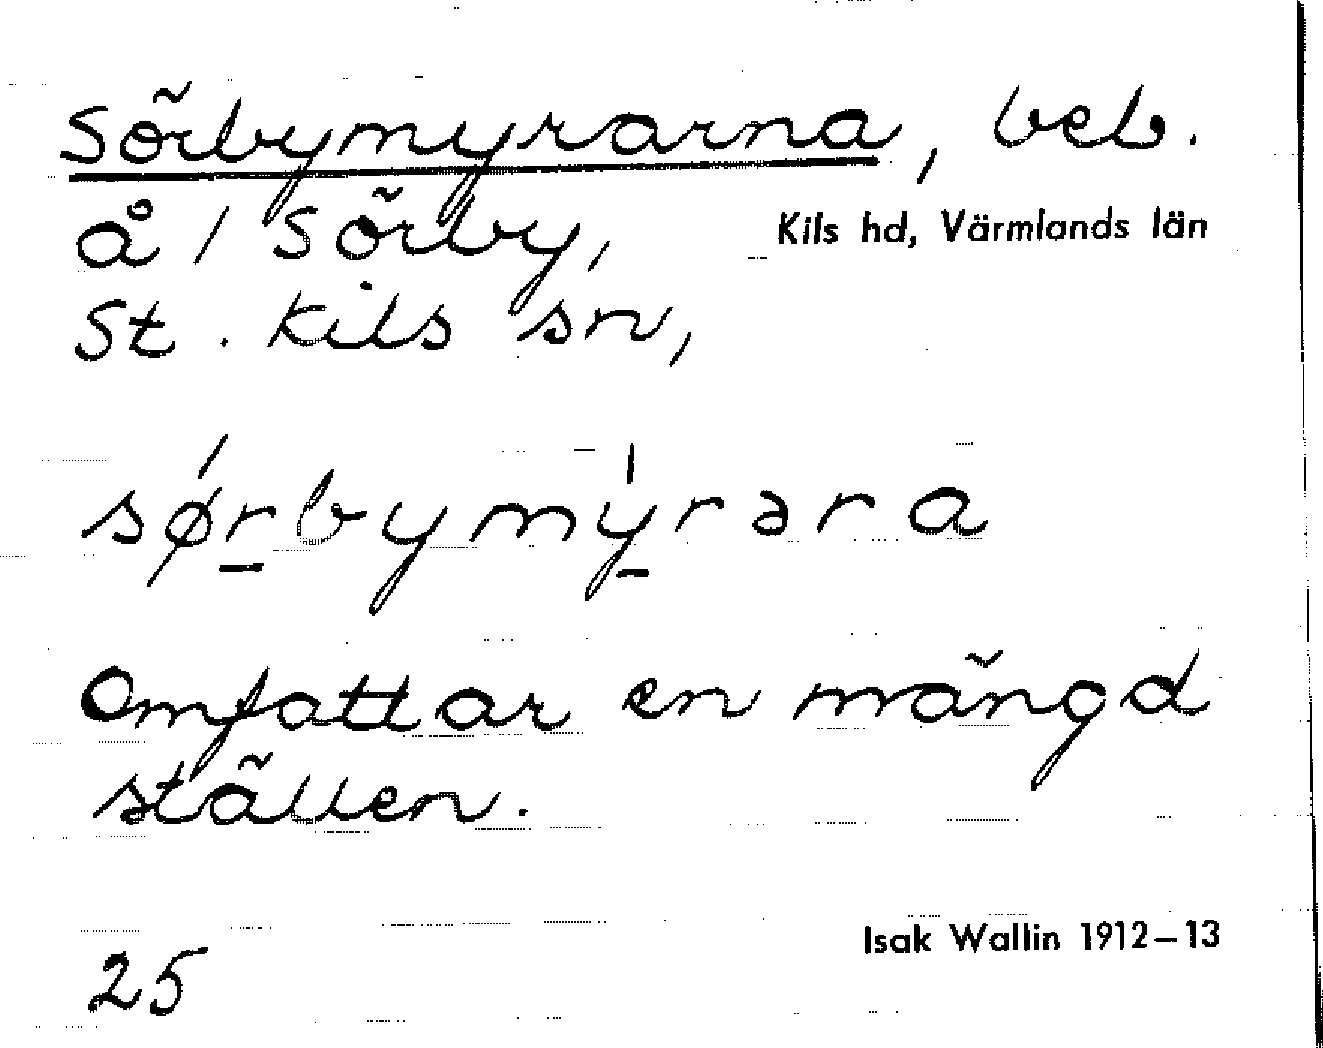 Sörbymyrarna, beb.
å 1 Sörby, Kils hd, Värmlands län
St. Kils sn,
sǿrbymýrəra
Omfattar en mängd
ställen.
Isak Wallin 1912–13
25